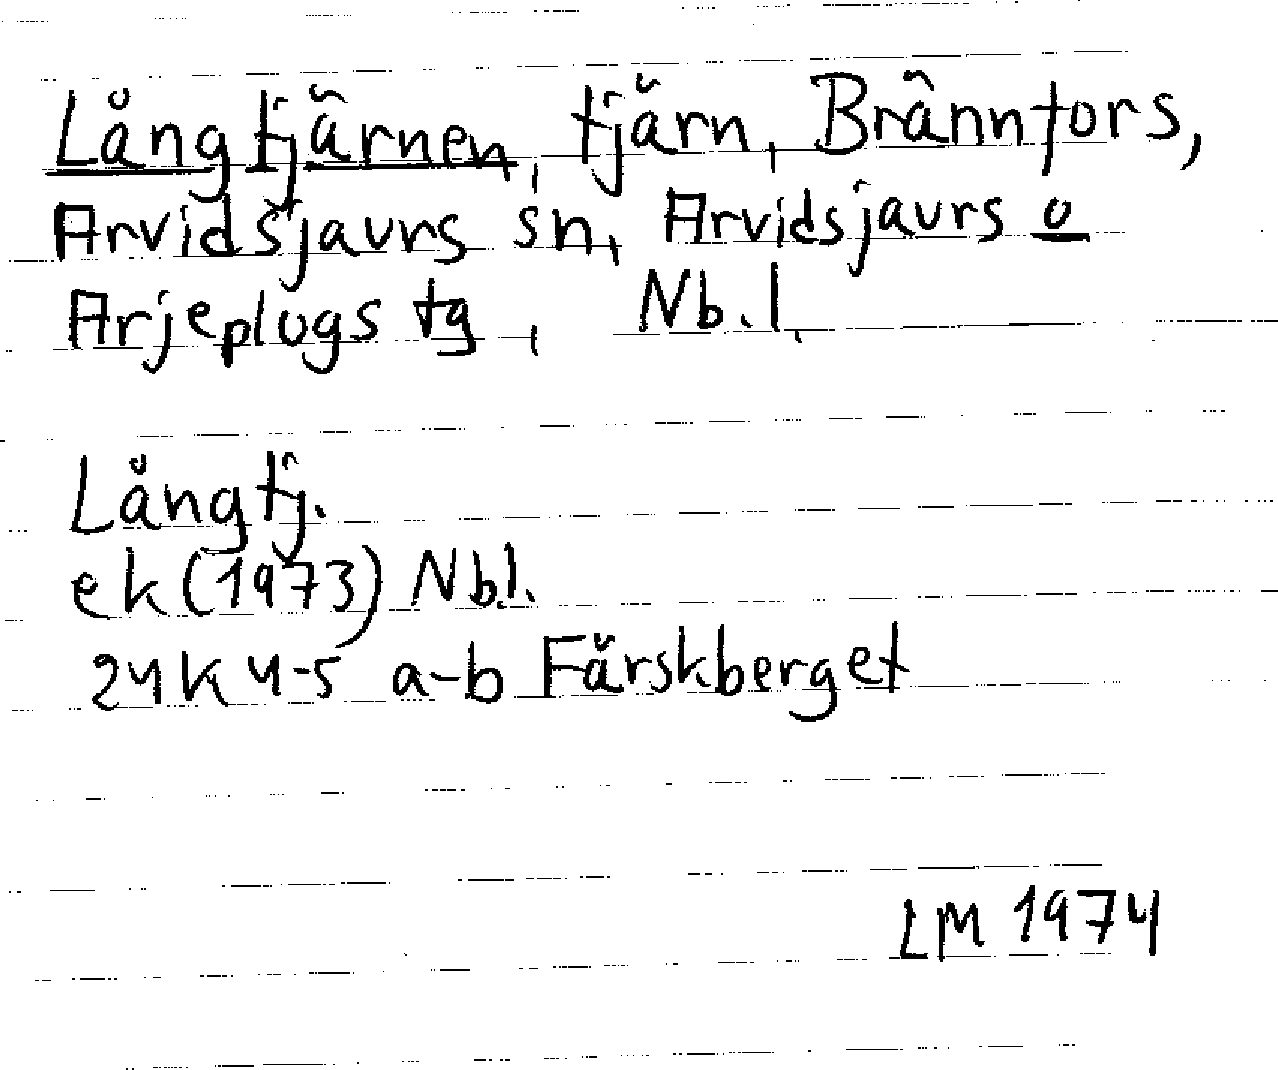 Långtjärnen, tjärn, Brännfors,
Arvidsjaurs sn, Arvidsjaurs o
Arjeplogs tg, Nb.l.
Långtj.
ek (1973) Nb.l.
24K 4-5 a-b Färskberget
LM 1974